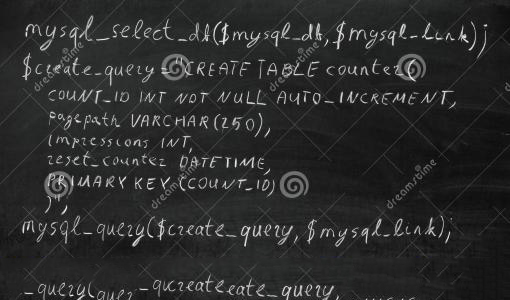 mysql_select_db($mysql_db, $mysql_link);
$create_query = "CREATE TABLE counter(
COUNT_ID INT NOT NULL AUTO_INCREMENT,
pagepath VARCHAR(250),
impressions INT,
reset_counter DATETIME,
PRIMARY KEY (COUNT_ID)
)";
mysql_query($create_query, $mysql_link);
_query(quer_qucreateeate_query,
dreamstime
dreamstime
dreamstime
dreamstime